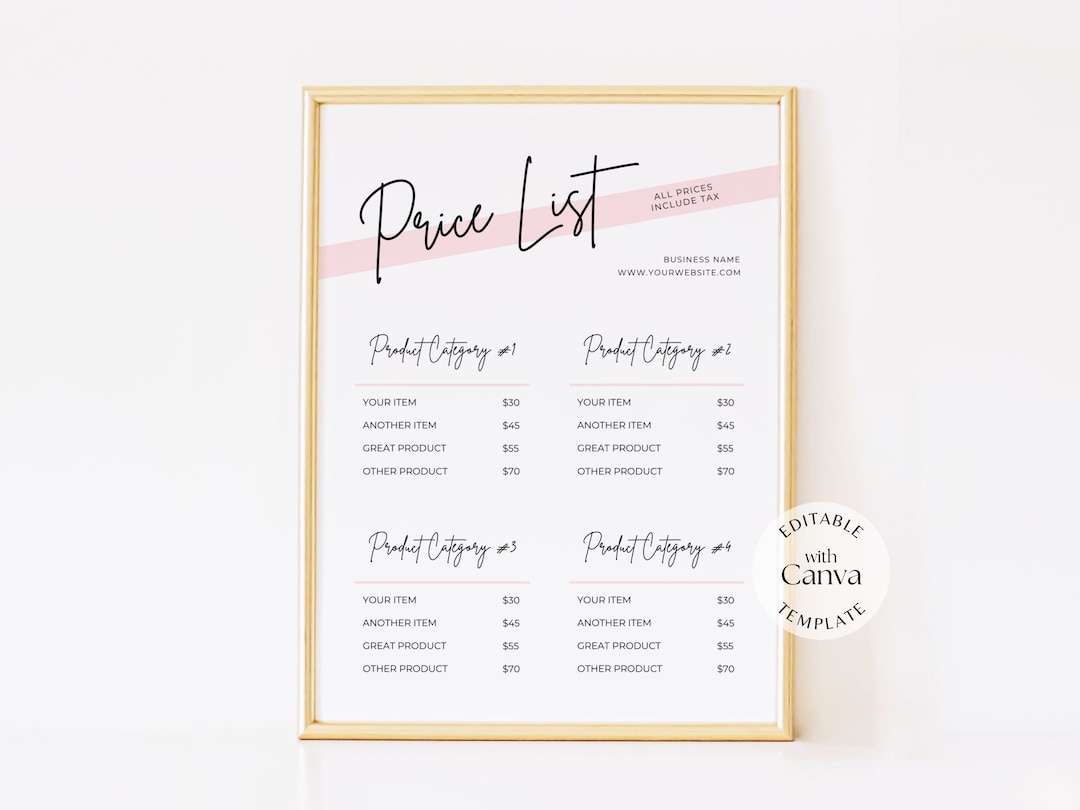 Price List
ALL PRICES
INCLUDE TAX
BUSINESS NAME
WWW.YOURWEBSITE.COM
Product Category #1
YOUR ITEM $30
ANOTHER ITEM $45
GREAT PRODUCT $55
OTHER PRODUCT $70
Product Category #2
YOUR ITEM $30
ANOTHER ITEM $45
GREAT PRODUCT $55
OTHER PRODUCT $70
Product Category #3
YOUR ITEM $30
ANOTHER ITEM $45
GREAT PRODUCT $55
OTHER PRODUCT $70
Product Category #4
YOUR ITEM $30
ANOTHER ITEM $45
GREAT PRODUCT $55
OTHER PRODUCT $70
EDITABLE
with
Canva
TEMPLATE